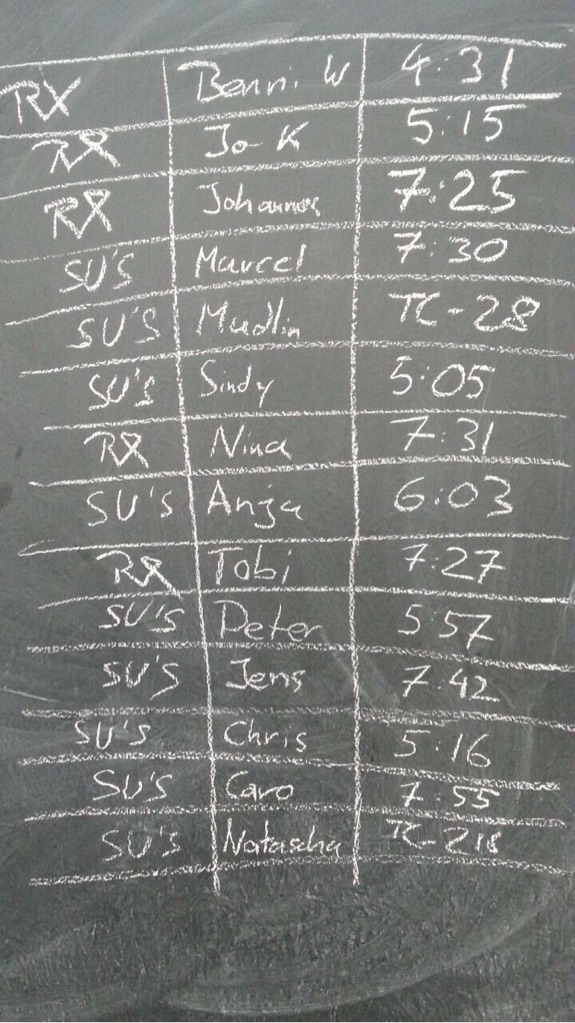 RX Benni W 4:31
RX Jo K 5:15
RX Johannes 7:25
SU'S Marcel 7:30
SU'S Madlin TC-28
SU'S Sindy 5:05
RX Nina 7:31
SU'S Anja 6:03
RX Tobi 7:27
SU'S Peter 5:57
SU'S Jens 7:42
SU'S Chris 5:16
SU'S Caro 7:55
SU'S Natascha